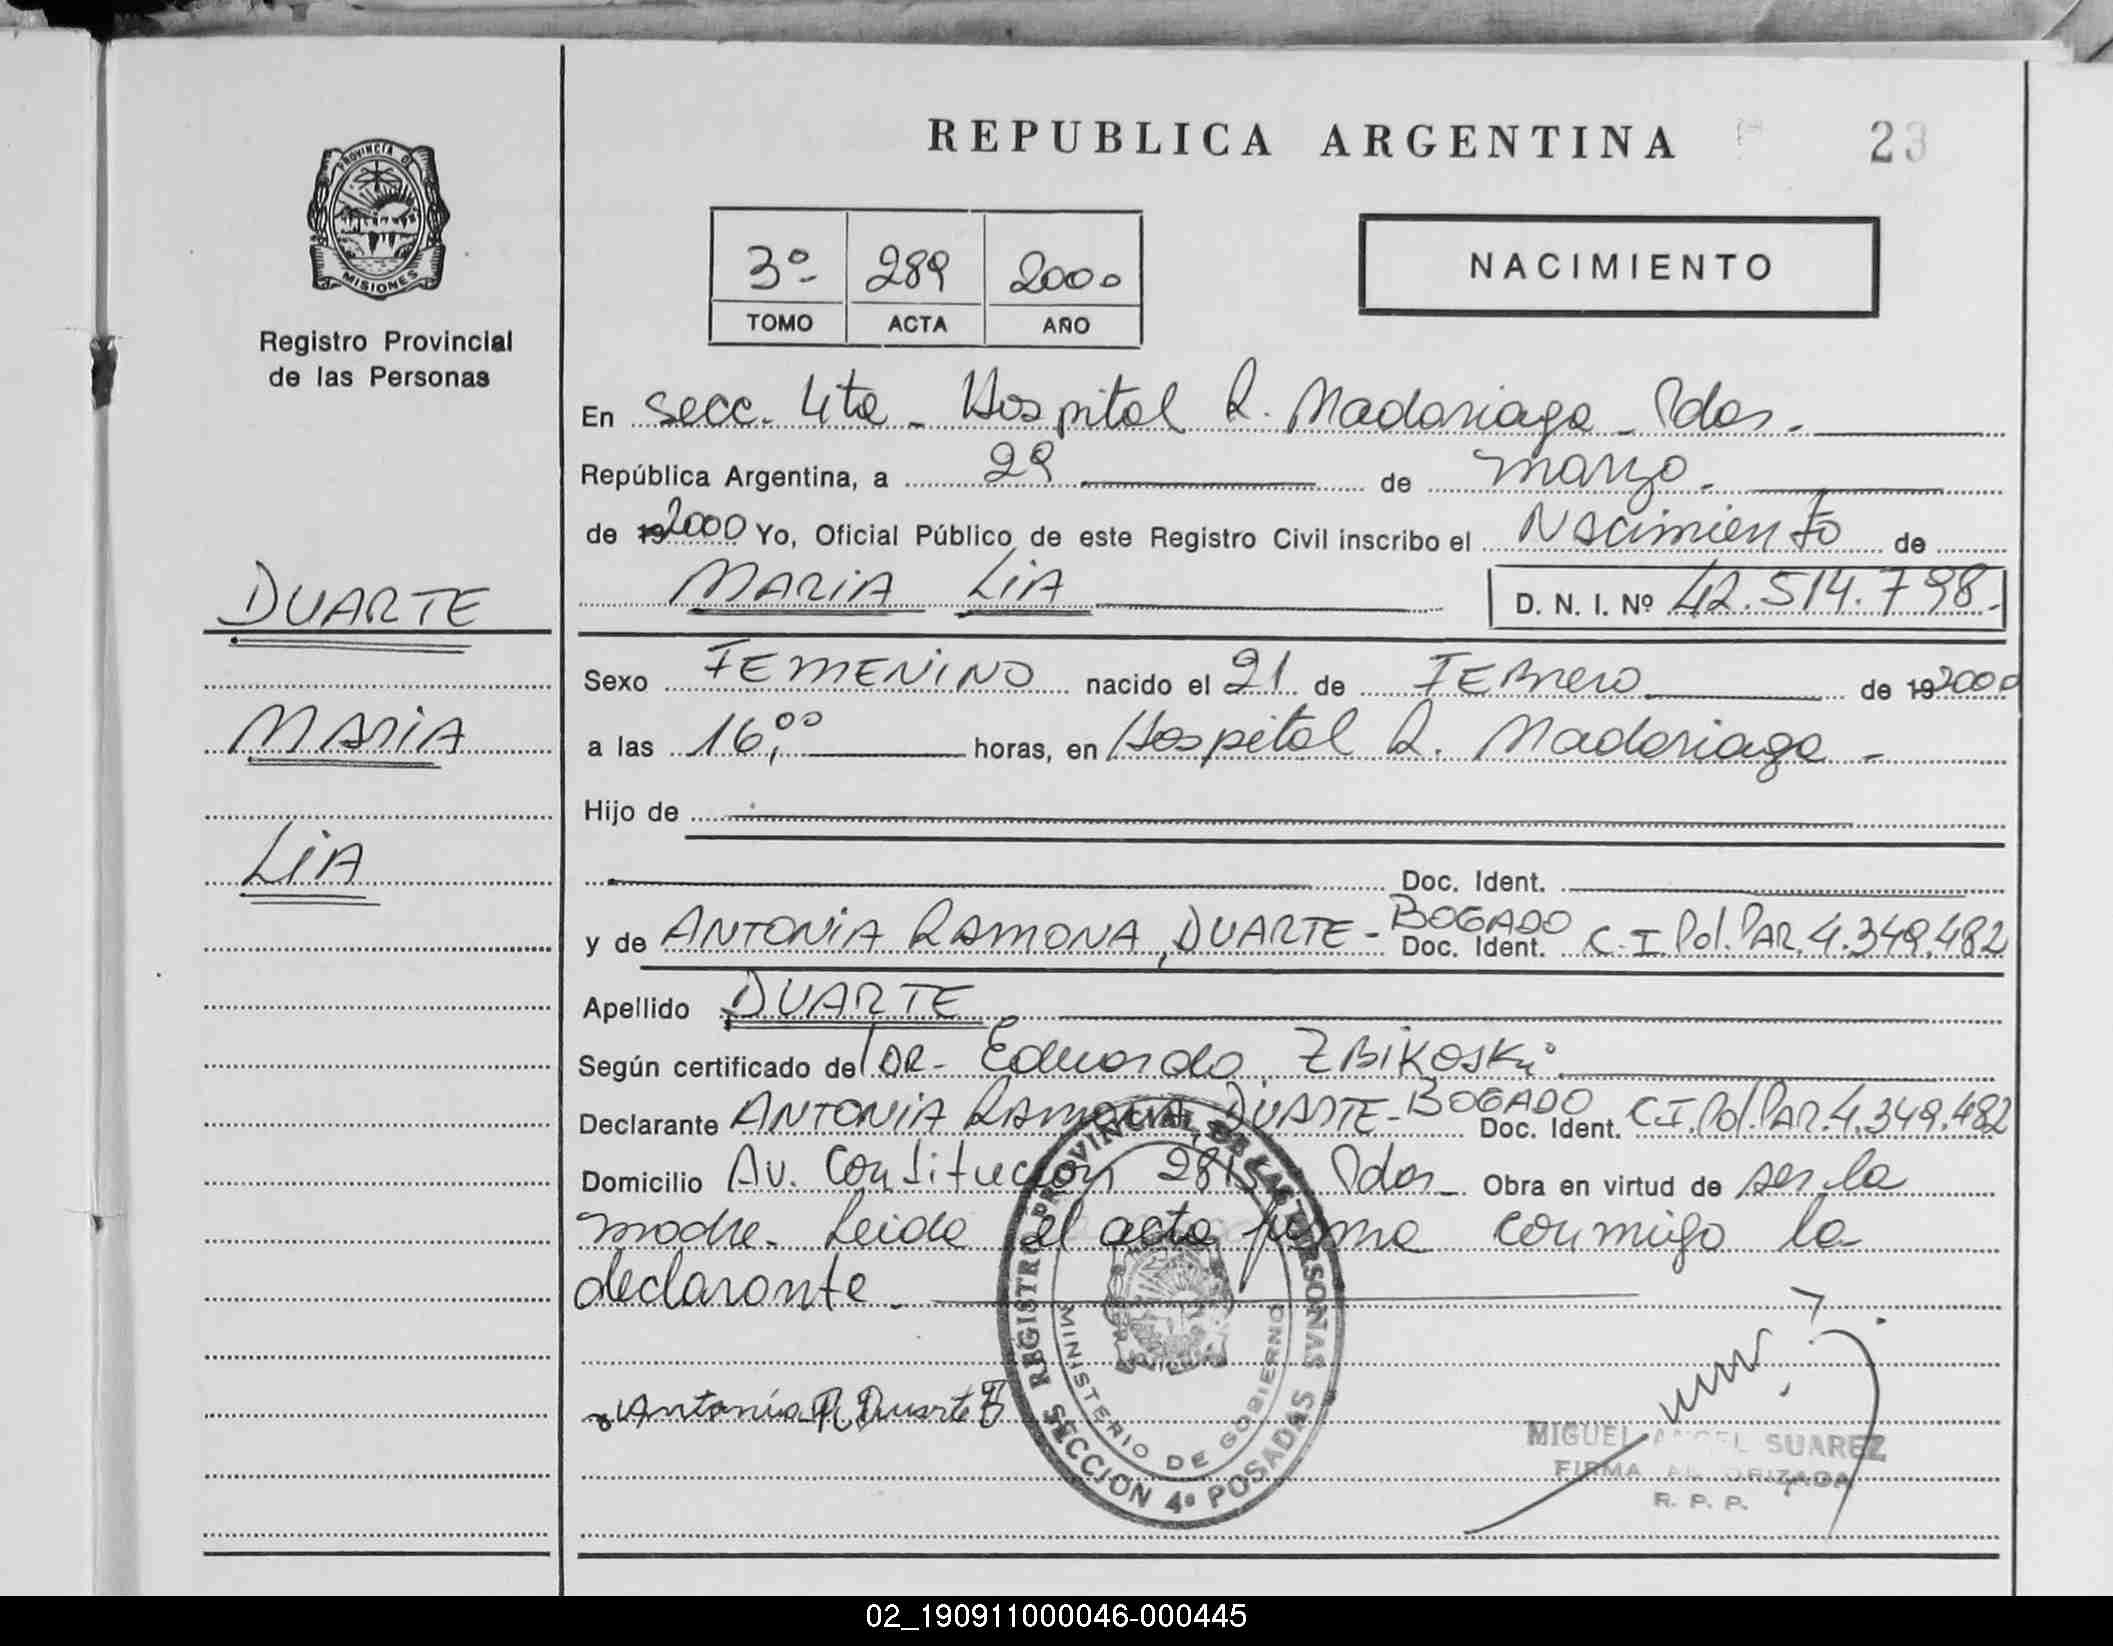 REPUBLICA ARGENTINA
23
PROVINCIA DE
MISIONES
Registro Provincial
de las Personas
3º 289 2000
TOMO ACTA AÑO
NACIMIENTO
En Secc. 4ta - Hospital R. Madariaga - Pdas.
República Argentina, a 29 de marzo.
de 192000 Yo, Oficial Público de este Registro Civil inscribo el Nacimiento de
MARIA LIA D. N. I. Nº 42.514.798.-
DUARTE
MARIA
LIA
Sexo FEMENINO nacido el 21 de FEBrero de 192000
a las 16,00 horas, en Hospital R. Madariaga -
Hijo de
Doc. Ident.
y de ANTONIA RAMONA, DUARTE - BOGADO Doc. Ident. C.I. Pol. PAR. 4.349.482
Apellido DUARTE
Según certificado del DR- Eduardo ZBIKOSKi
Declarante ANTONIA RAMONA, DUARTE - BOGADO Doc. Ident. C.I. Pol. PAR. 4.349.482
Domicilio Av. Constitucion Pdas - Obra en virtud de ser la
madre - Leida el acta firma conmigo la
declarante -
Antonia R Duarte B
REGISTRO PROVINCIAL DE LAS PERSONAS
MINISTERIO DE GOBIERNO
SECCION 4ª POSADAS
MIGUEL ANGEL SUAREZ
FIRMA AUTORIZADA
R. P. P.
02_190911000046-000445